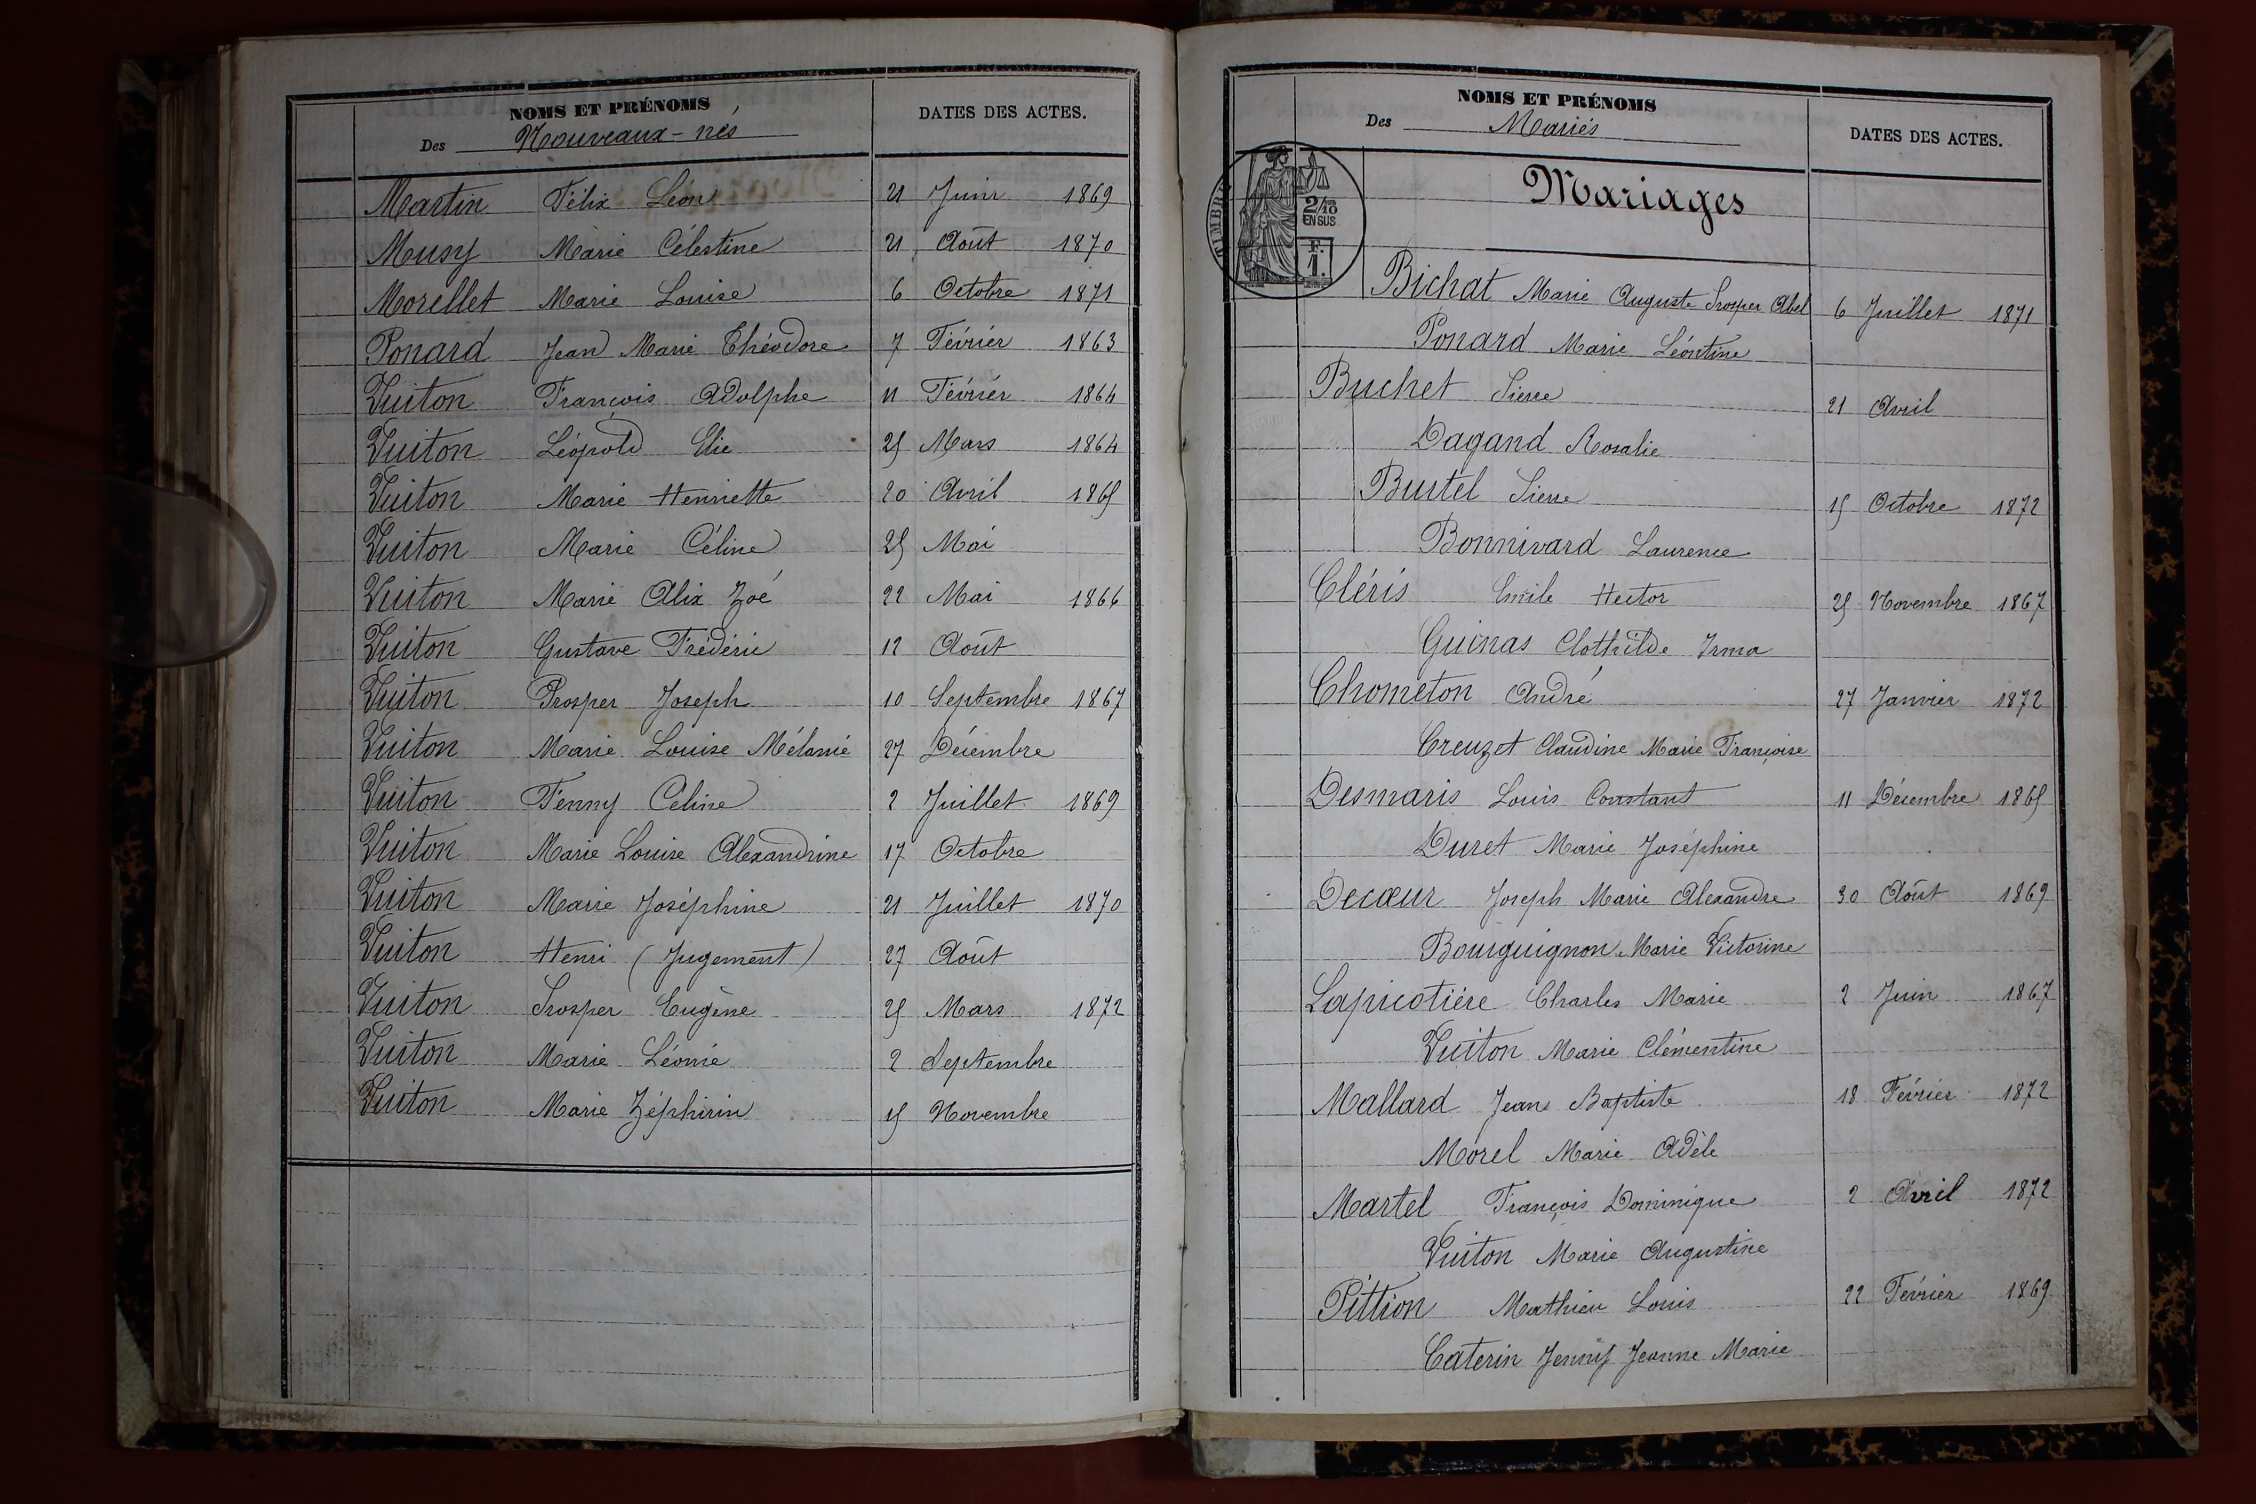 NOMS ET PRÉNOMS
Des Nouveaux-nés
DATES DES ACTES.
Martin Félix Léon 21 Juin 1869
Musy Marie Célestine 21 Août 1870
Morellet Marie Louise 6 Octobre 1871
Ponard Jean Marie Théodore 7 Février 1863
Vuiton François Adolphe 11 Février 1864
Vuiton Léopold Elie 25 Mars 1864
Vuiton Marie Henriette 20 Avril 1865
Vuiton Marie Céline 25 Mai
Vuiton Marie Alix Zoé 22 Mai 1866
Vuiton Gustave Frédéric 12 Août
Vuiton Prosper Joseph 10 Septembre 1867
Vuiton Marie Louise Mélanie 27 Décembre
Vuiton Fenny Céline 2 Juillet 1869
Vuiton Marie Louise Alexandrine 17 Octobre
Vuiton Marie Joséphine 21 Juillet 1870
Vuiton Henri (Jugement) 27 Août
Vuiton Prosper Eugène 25 Mars 1872
Vuiton Marie Léonie 2 Septembre
Vuiton Marie Zéphirin 15 Novembre
NOMS ET PRÉNOMS
Des Mariés
DATES DES ACTES.
TIMBRE
2/10
EN SUS
F.
1.
Mariages
Bichat Marie Auguste Prosper Abel 6 Juillet 1871
Ponard Marie Léontine
Buchet Pierre 21 Avril
Dagand Rosalie
Burtel Pierre 15 Octobre 1872
Bonnivard Laurence
Cléris Emile Hector 25 Novembre 1867
Guinas Clothilde Irma
Chometon André 27 Janvier 1872
Creuzet Claudine Marie Françoise
Desmaris Louis Constant 11 Décembre 1865
Duret Marie Joséphine
Decœur Joseph Marie Alexandre 30 Août 1869
Bourguignon Marie Victorine
Lapicotière Charles Marie 2 Juin 1867
Vuiton Marie Clémentine
Mallard Jean Baptiste 18 Février 1872
Morel Marie Adèle
Martel François Dominique 2 Avril 1872
Vuiton Marie Augustine
Pittion Mathieu Louis 22 Février 1869
Caterin Jenny Jeanne Marie